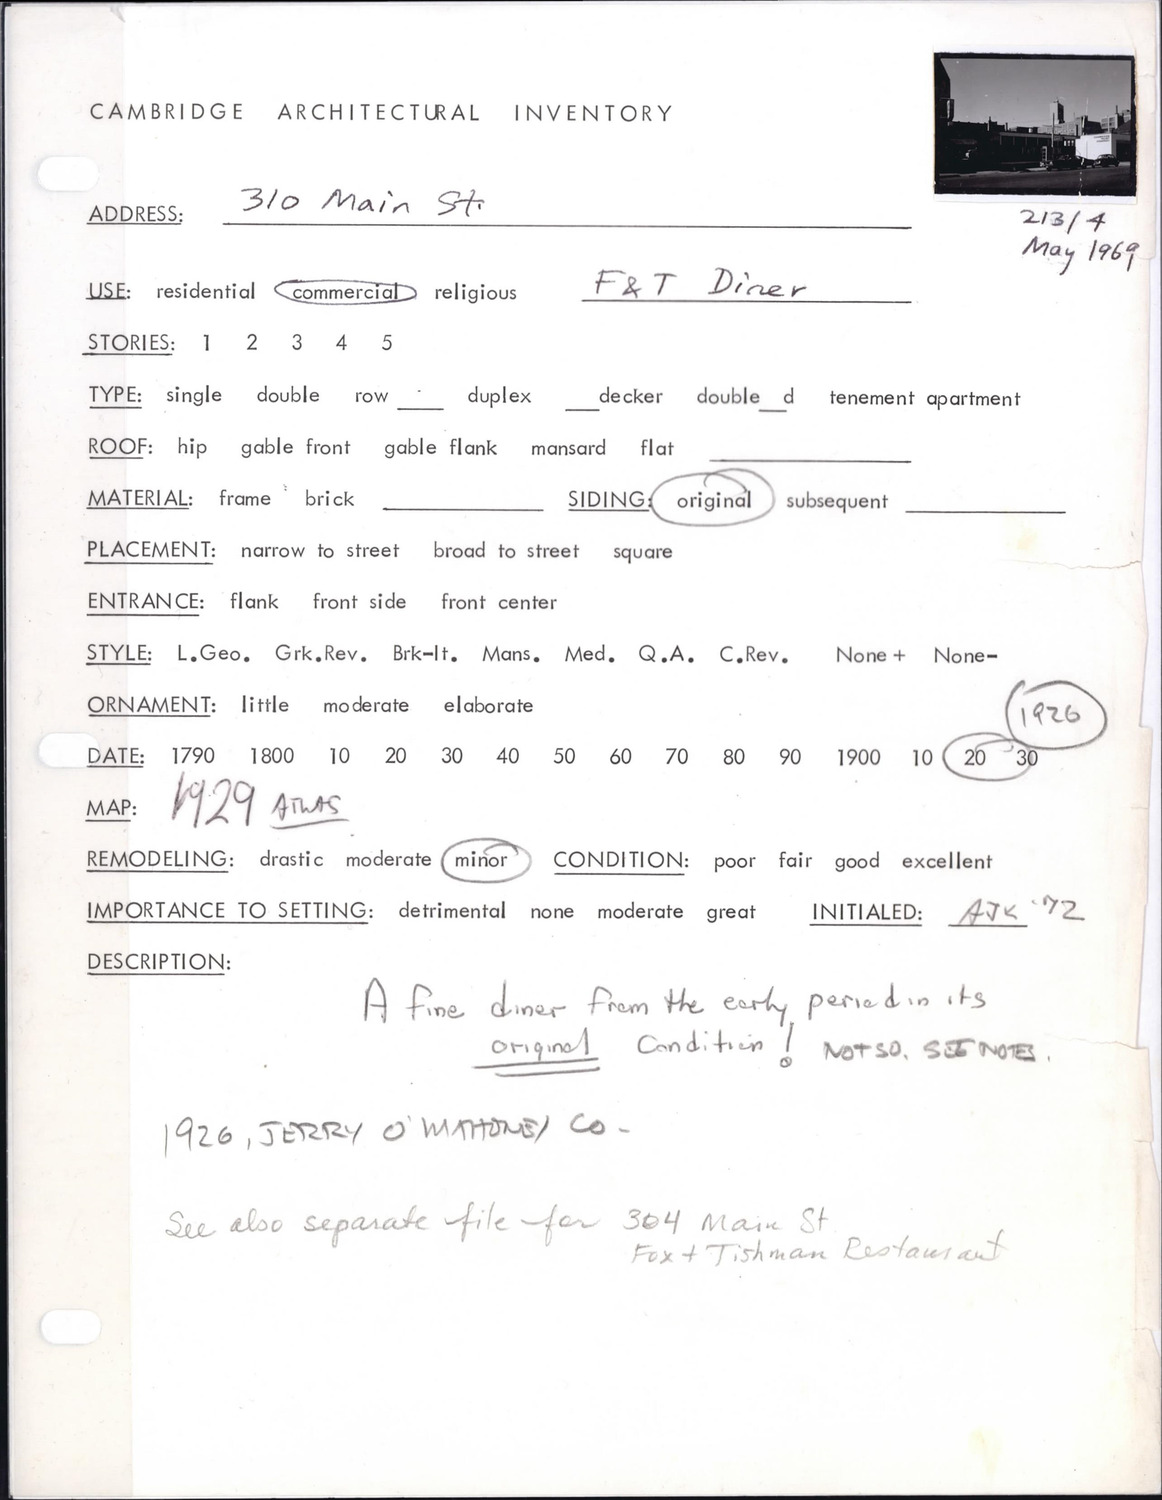 CAMBRIDGE ARCHITECTURAL INVENTORY
ADDRESS: 310 Main St.
213/4
May 1969
USE: residential commercial religious F&T Diner
STORIES: 1 2 3 4 5
TYPE: single double row ____ duplex ___decker double___d tenement apartment
ROOF: hip gable front gable flank mansard flat
MATERIAL: frame brick ____ SIDING: original subsequent ____
PLACEMENT: narrow to street broad to street square
ENTRANCE: flank front side front center
STYLE: L.Geo. Grk.Rev. Brk-It. Mans. Med. Q.A. C.Rev. None+ None-
ORNAMENT: little moderate elaborate
1926
DATE: 1790 1800 10 20 30 40 50 60 70 80 90 1900 10 20 30
MAP: 1929 ATLAS
REMODELING: drastic moderate minor CONDITION: poor fair good excellent
IMPORTANCE TO SETTING: detrimental none moderate great INITIALED: AJK '72
DESCRIPTION:
A fine diner from the early period in its
original Condition! NOT SO. SEE NOTES.
1926, JERRY O'MAHONEY CO-
See also separate file for 304 Main St
Fox + Tishman Restaurant